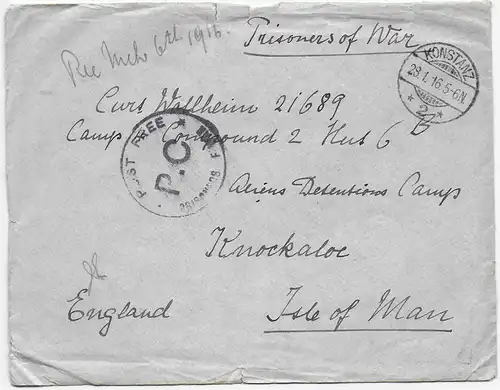 Rec Mch 6th 1916.
Prisoners of War
KONSTANZ
29.1.16.5-6N
* 2 *
Curt Wallheim 21689
Camp Compound 2 Hut 6 B
POST FREE
P.C.
PRISONERS
Aliens Detensions Camp
Knockaloe
England
Isle of Man